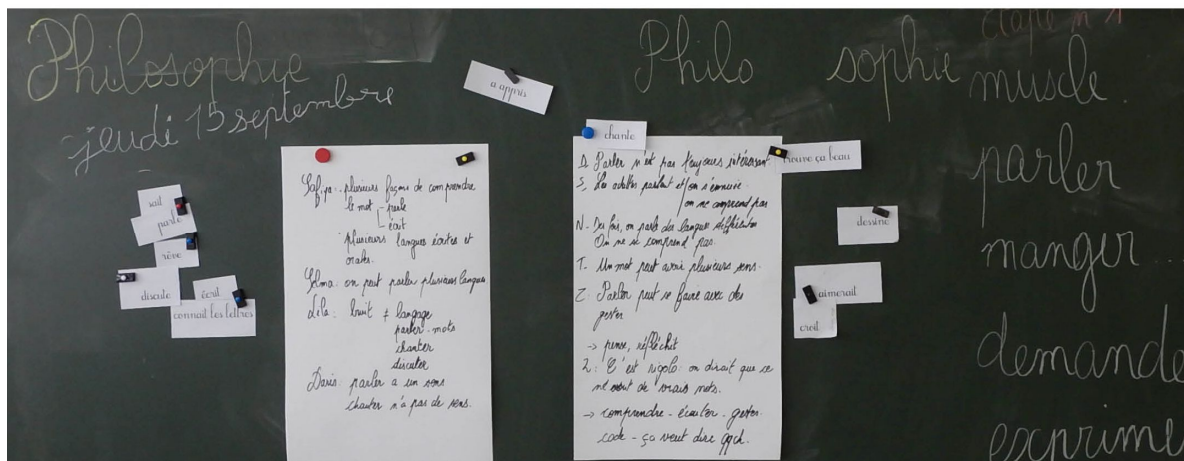 Philosophie
jeudi 15 septembre
sait
parle
rêve
discute
écrit
connait les lettres
plusieurs façons de comprendre
le mot - parle
écrit
plusieurs langues écrites et
orales.
Selma: on peut parler plusieurs langues
Léla: bruit ≠ langage
parler - mots
chanter
discuter
Daris: parler a un sens
chanter n'a pas de sens.
a appris
Philo sophie
chante
D. Parler n'est pas toujours intéressant.
S. Les adultes parlent et on s'ennuie.
on ne comprend pas
N- Des fois, on parle des langues différentes
On ne se comprend pas.
T. Un mot peut avoir plusieurs sens.
Z: Parler peut se faire avec des
gestes
→ pense, réfléchit
Z: C'est rigolo: on dirait que ce
ne sont de vrais mots.
→ comprendre - écouter - gestes
code - ça veut dire qqch.
trouve ça beau
dessine
aimerait
croit
étape n°1
muscle.
parler
manger...
demande
exprime